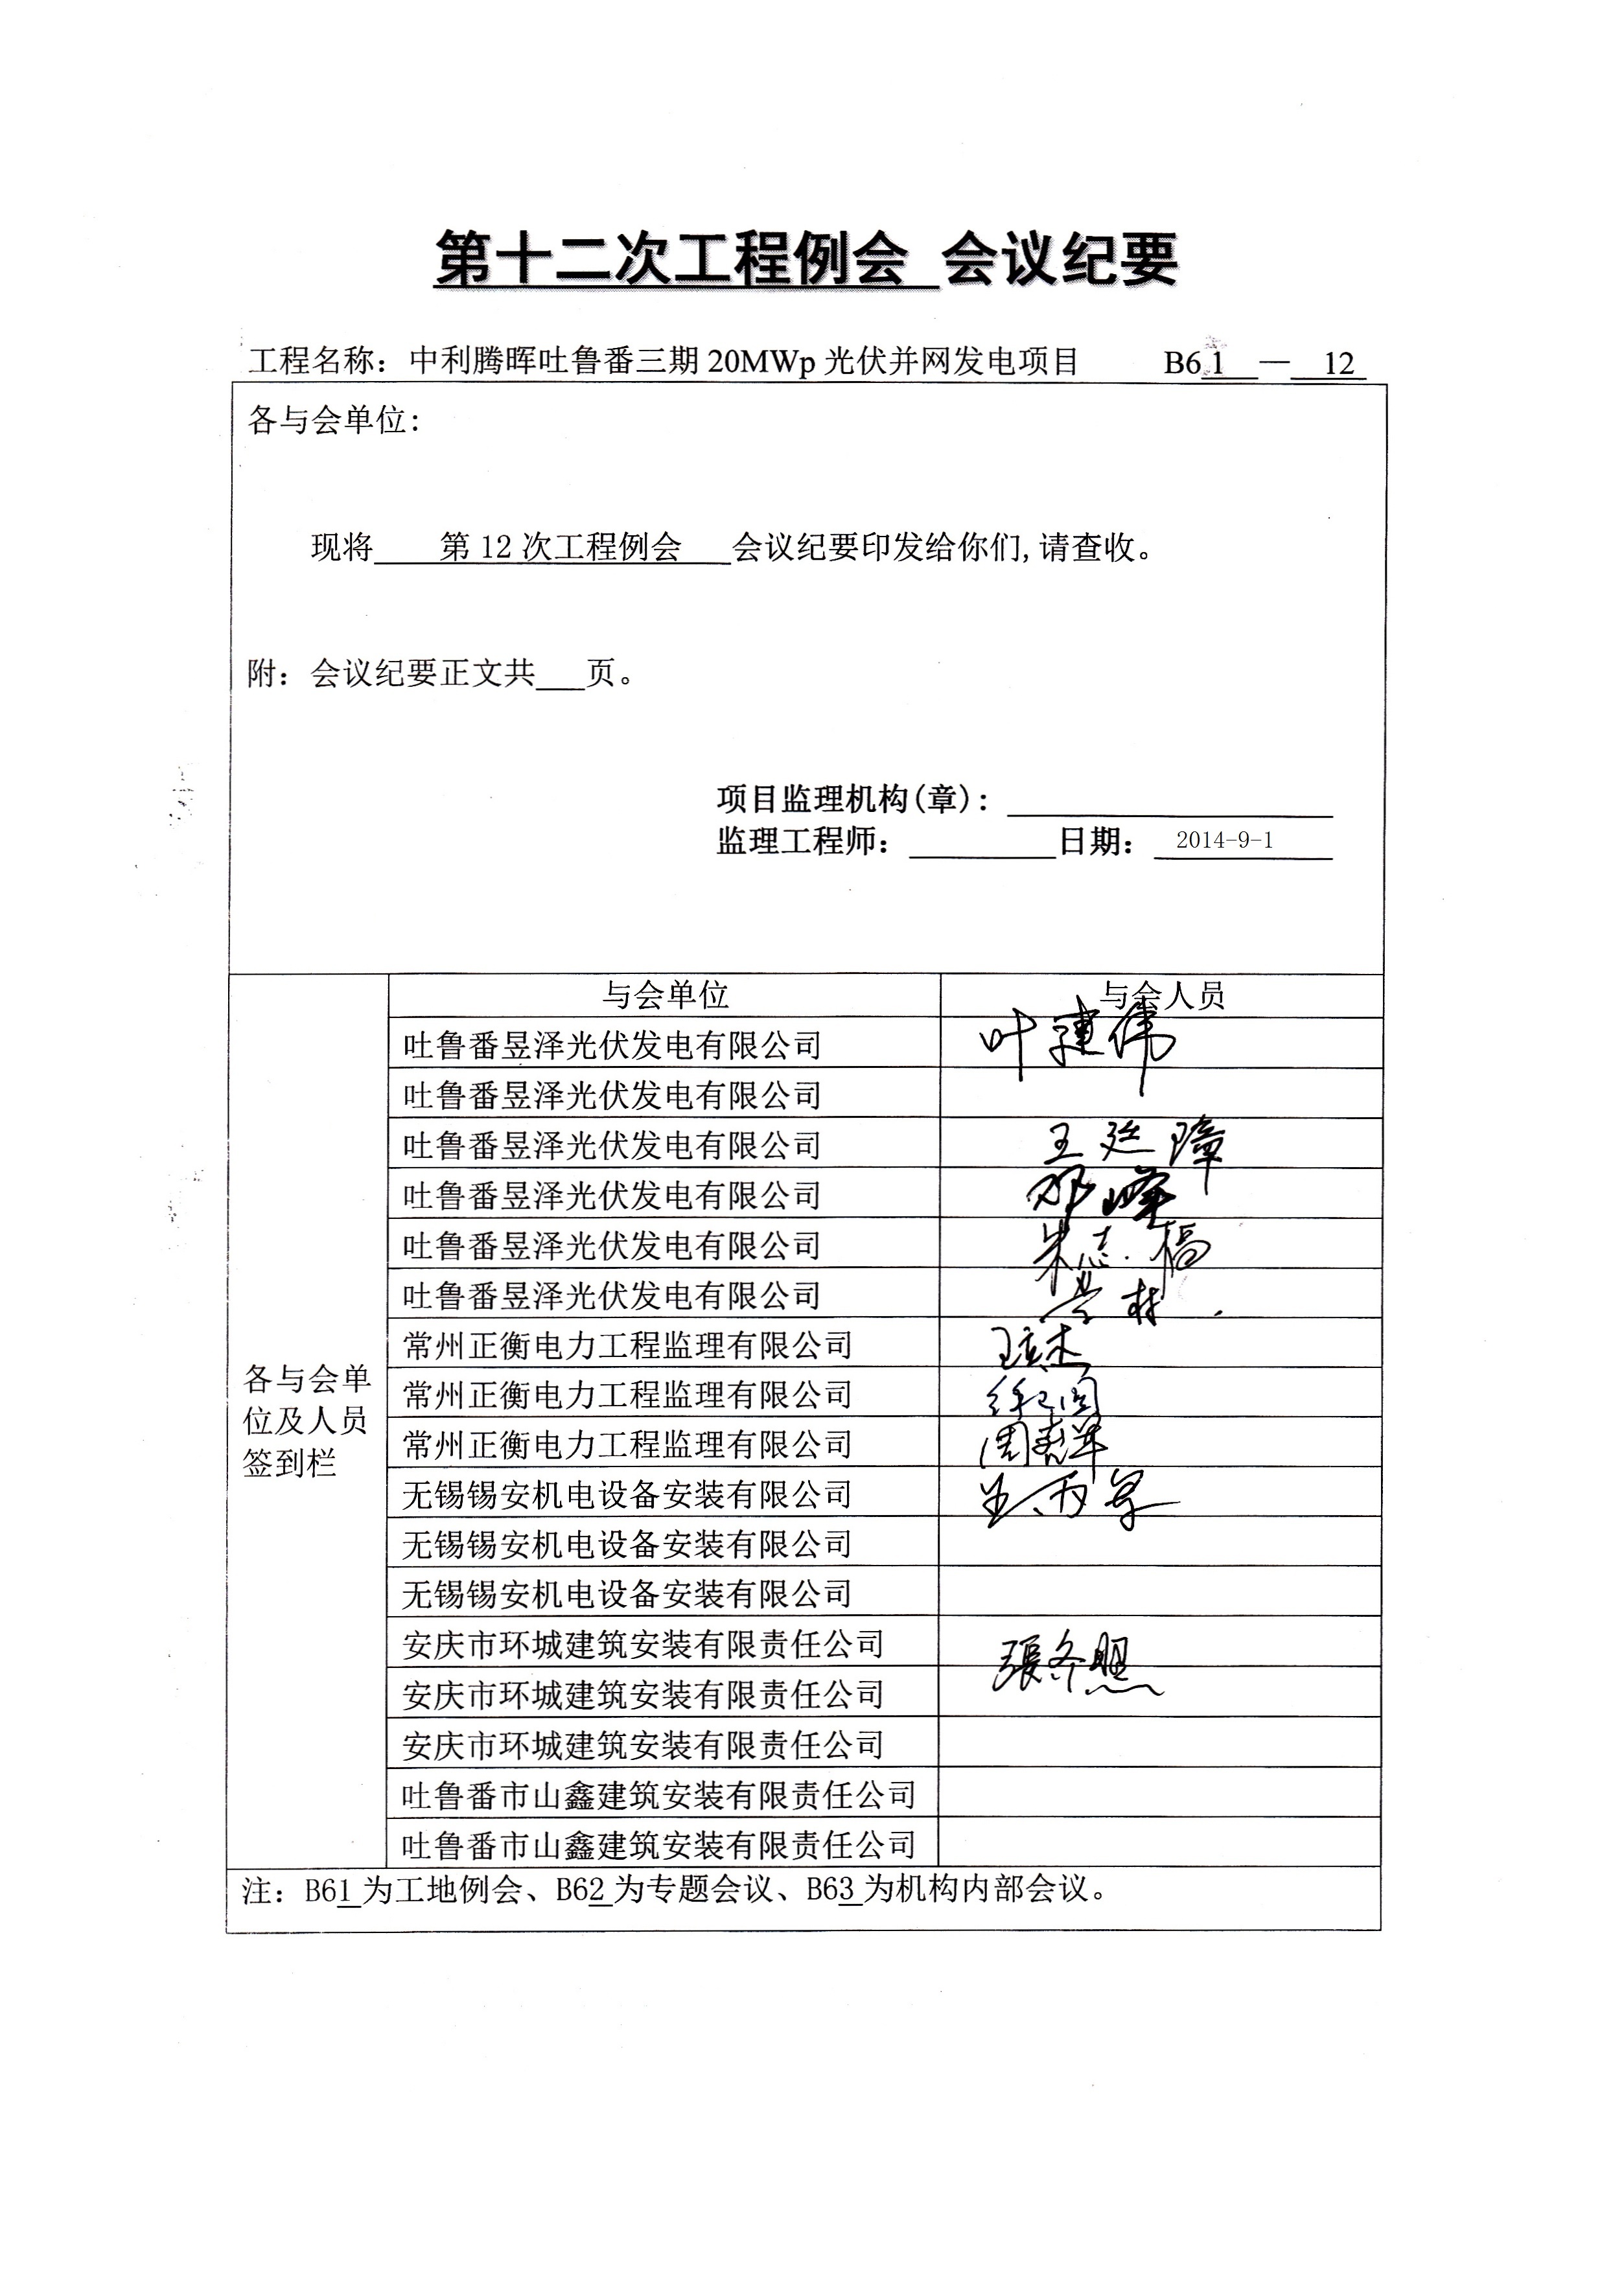 第十二次工程例会 会议纪要
工程名称：中利腾晖吐鲁番三期 20MWp 光伏并网发电项目 B6 1 — 12
各与会单位：
现将 第 12 次工程例会 会议纪要印发给你们,请查收。
附：会议纪要正文共___页。
项目监理机构(章)：
监理工程师： 日期： 2014-9-1
与会单位 与会人员
吐鲁番昱泽光伏发电有限公司 叶建伟
吐鲁番昱泽光伏发电有限公司
吐鲁番昱泽光伏发电有限公司 王廷璋
吐鲁番昱泽光伏发电有限公司
吐鲁番昱泽光伏发电有限公司
吐鲁番昱泽光伏发电有限公司
常州正衡电力工程监理有限公司
常州正衡电力工程监理有限公司
常州正衡电力工程监理有限公司
无锡锡安机电设备安装有限公司
无锡锡安机电设备安装有限公司
无锡锡安机电设备安装有限公司
安庆市环城建筑安装有限责任公司 張冬照
安庆市环城建筑安装有限责任公司
安庆市环城建筑安装有限责任公司
吐鲁番市山鑫建筑安装有限责任公司
吐鲁番市山鑫建筑安装有限责任公司
各与会单
位及人员
签到栏
注：B61 为工地例会、B62 为专题会议、B63 为机构内部会议。